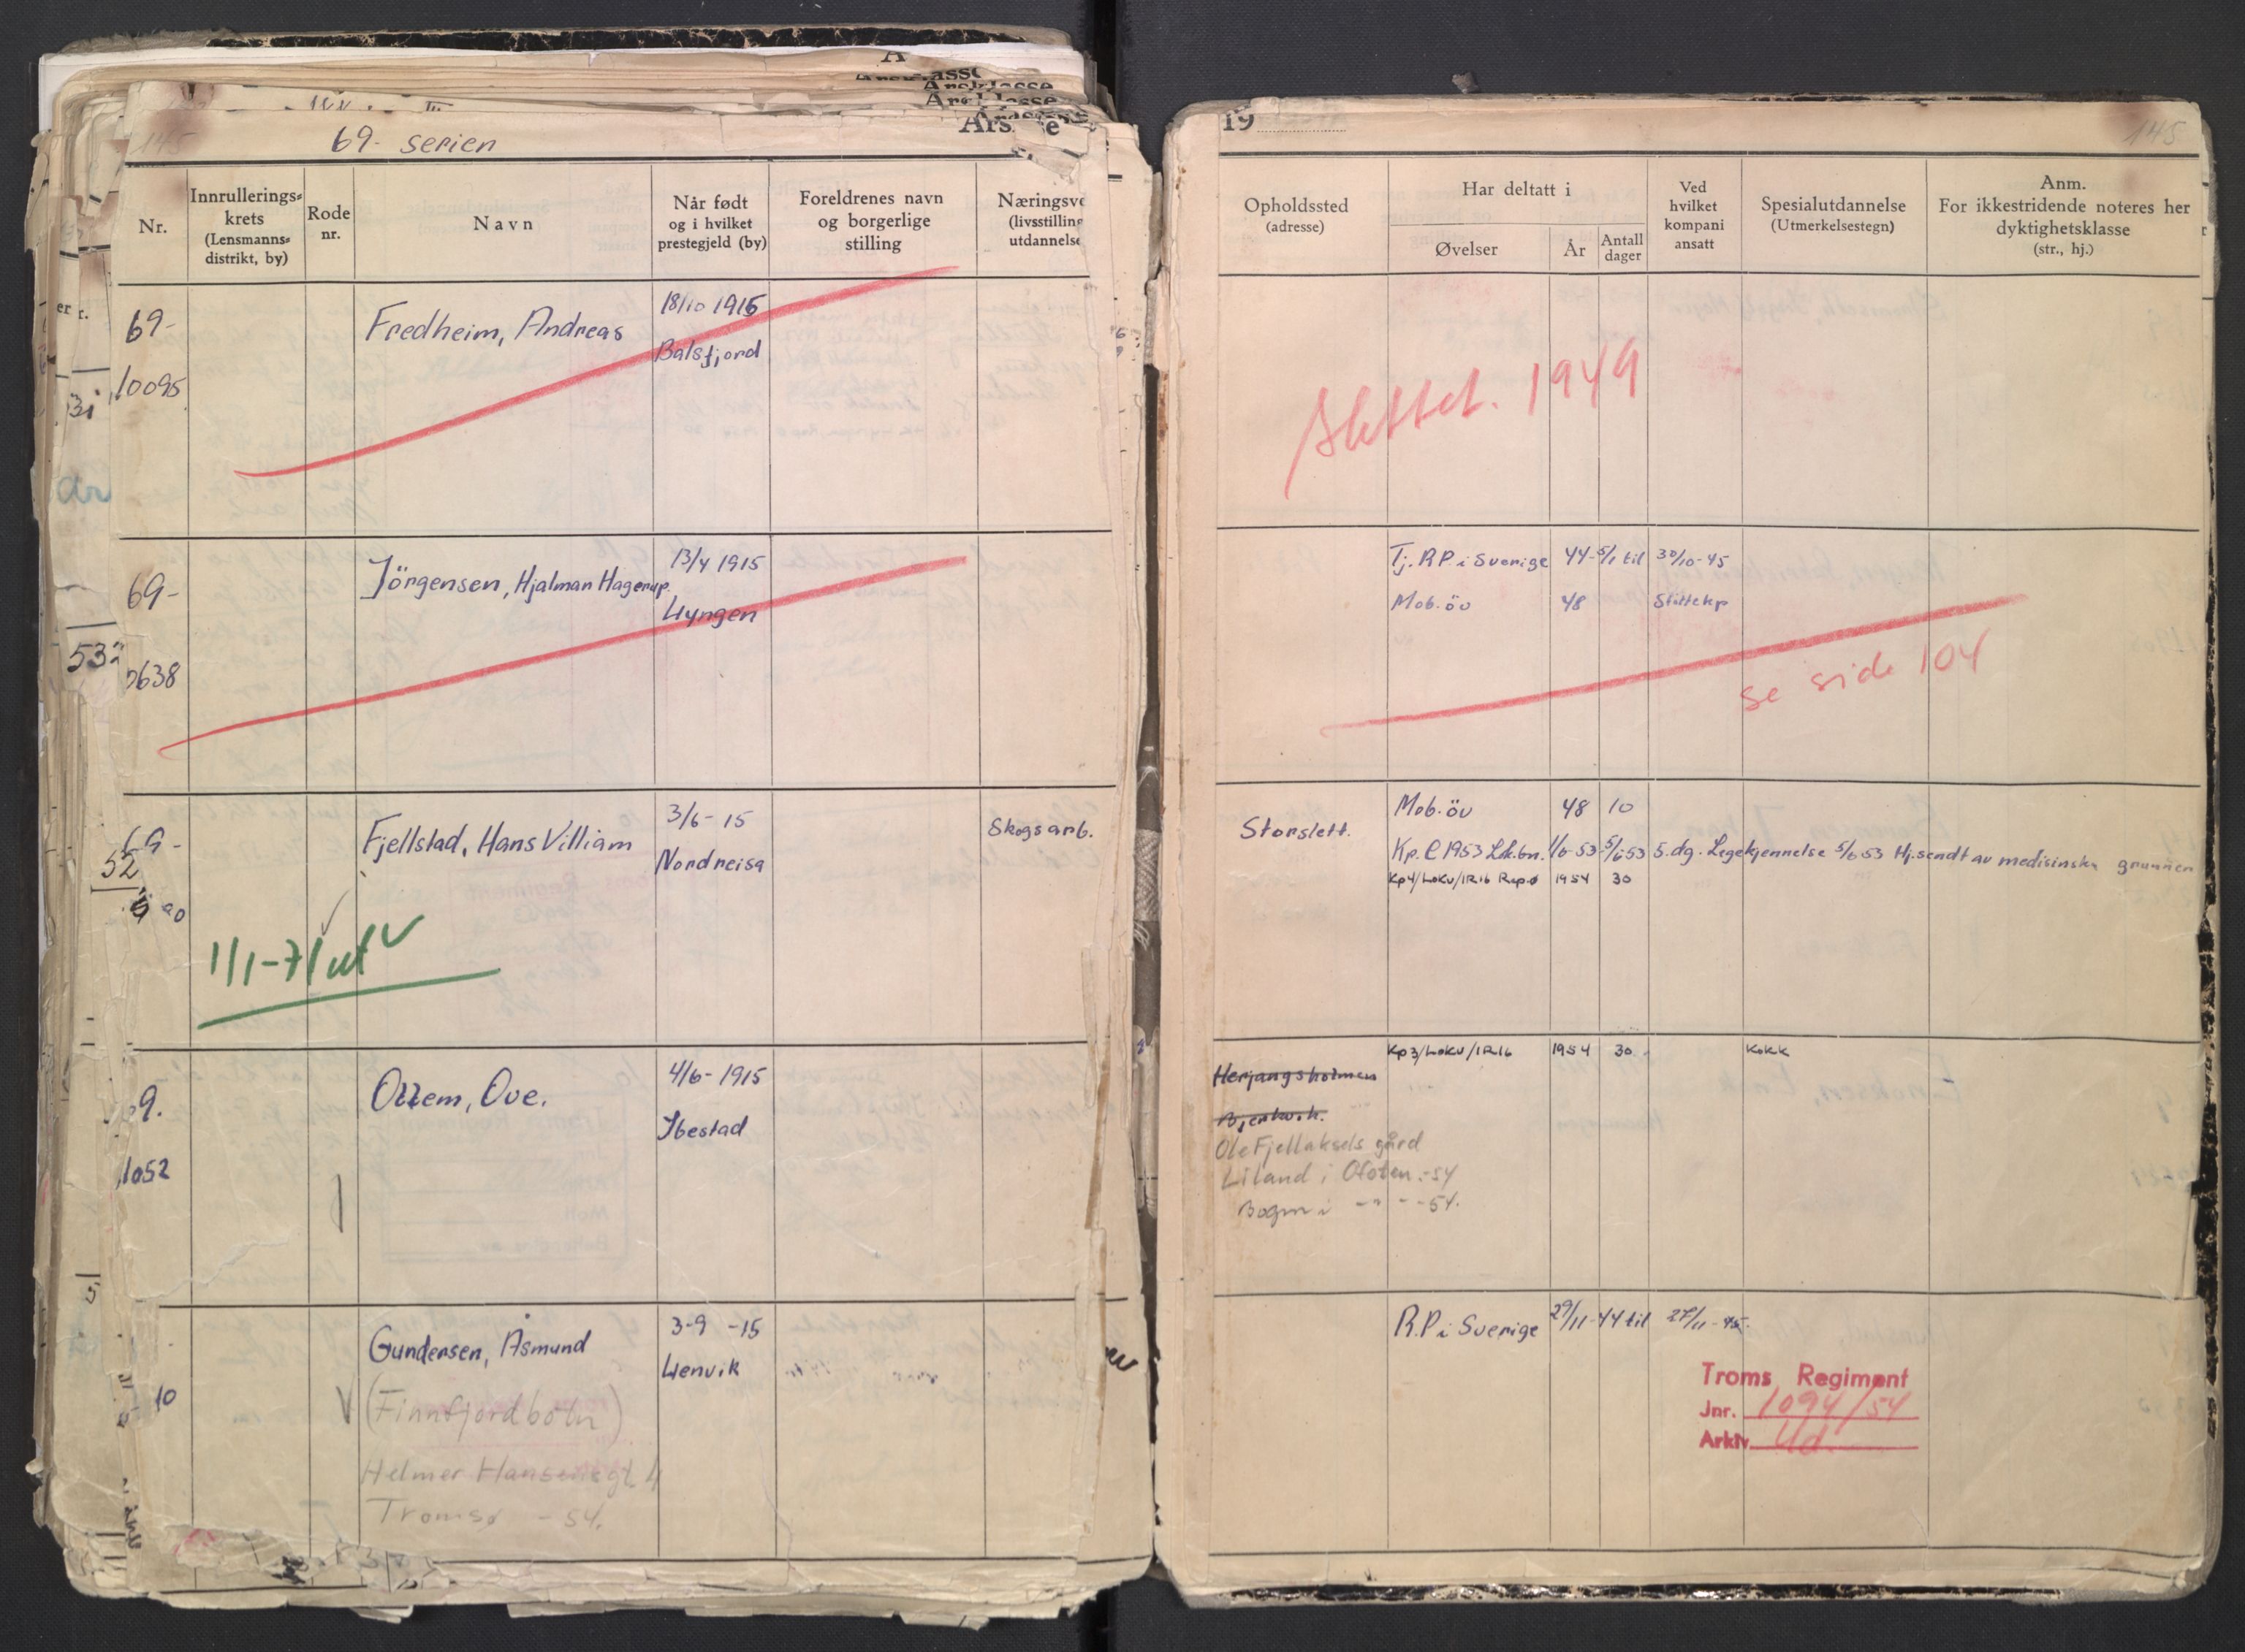 145
69- serien
Nr.
Innrullerings-
krets
(Lensmanns-
distrikt, by)
Rode
nr.
Navn
Når født
og i hvilket
prestegjeld (by)
Foreldrenes navn
og borgerlige
stilling
Næringsve
(livsstilling
utdannelse
69-
10095
Fredheim, Andreas
18/10 1915
Balsfjord
69-
0638
Jörgensen, Hjalmar Hagerup.
13/4 1915
Lyngen
69-
Fjellstad, Hans Villiam
3/6- 15
Nordreisa
Skogsarb.
1/1-71 ut
Ove.
4/6- 1915
Ibestad
1052
10
Gundersen, Åsmund
3-9 -15
Lenvik
(Finnfjordbotn)
Helmer Hansensgt. 4
Tromsø - 54.
19
145
Opholdssted
(adresse)
Har deltatt i
Øvelser
År
Antall
dager
Ved
hvilket
kompani
ansatt
Spesialutdannelse
(Utmerkelsestegn)
Anm.
For ikkestridende noteres her
dyktighetsklasse
(str., hj.)
slettet. 1949
Tj. R.P. i Sverige 44-5/1 til 30/10-45
Mob. öv 48 Støttekp
se side 104
Storslett.
Mob. öv 48 10
Kp. C 1953 Lok.bn. 1/6-53-5/6-53 5.dg. Legekjennelse 5/6 53 Hj.sendt av medisinske grunner
Kp4/LOKV/IR16 Rep.ø 1954 30
Kp3/LOKV/IR16 1954 30 Kokk
Herjangsholmen
Bjerkvik.
Ole Fjellaksels gård
Liland i Ofoten.-54
Bogen i -"- -54.
R.P i Sverige 29/11-44 til 27/11-45.
Troms Regiment
Jnr. 1094/54
Arkiv Ud.